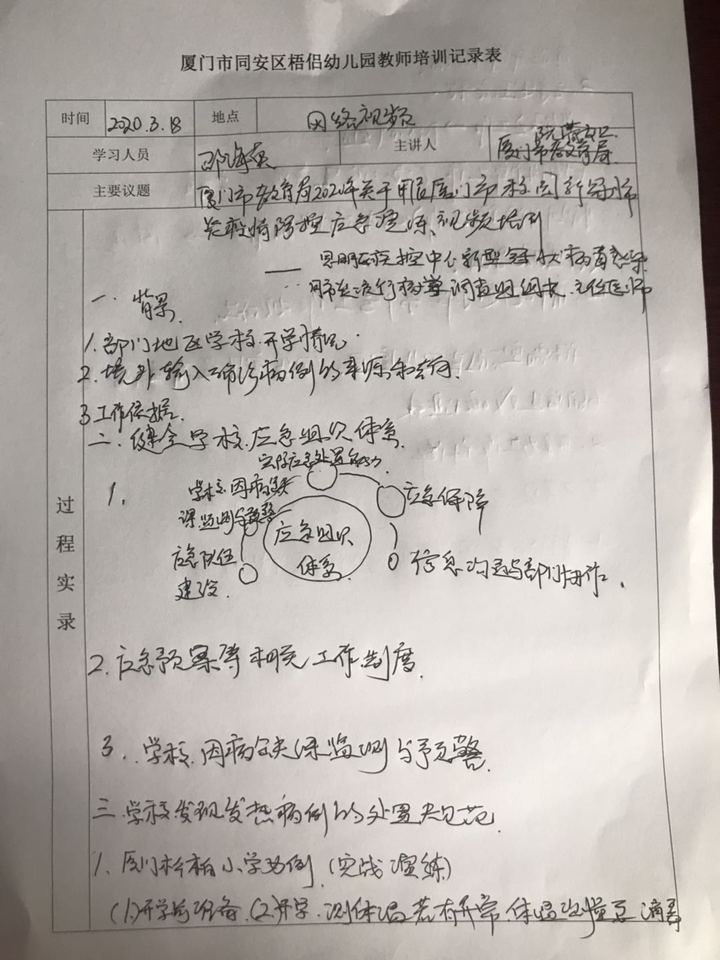 厦门市同安区梧侣幼儿园教师培训记录表
时间 2020.3.18 地点 网络视频
学习人员 邓海 主讲人 厦门市教育局
主要议题 厦门市教育局2020年关于开展厦门市校园新冠肺
炎疫情防控应急演练视频培训
——思明区疾控中心新型冠状病毒感染
肺炎流行病学调查组组长、主任医师
过程实录
一、背景
1.部门地区学校开学情况
2.境外输入确诊病例的来源和去向.
3.工作依据.
二、健全学校应急组织体系.
1.
应急处置能力
学校因病缺
课监测与预警
应急保障
应急组织
体系
应急队伍
建设.
信息沟通与部门协作.
2.应急预案等相关工作制度.
3.学校因病缺课监测与预警.
三.学校发现发热病例的处置规范.
1.厦门 小学为例.(实战演练)
(1)开学前准备.(2)开学.测体温若有异常.体温